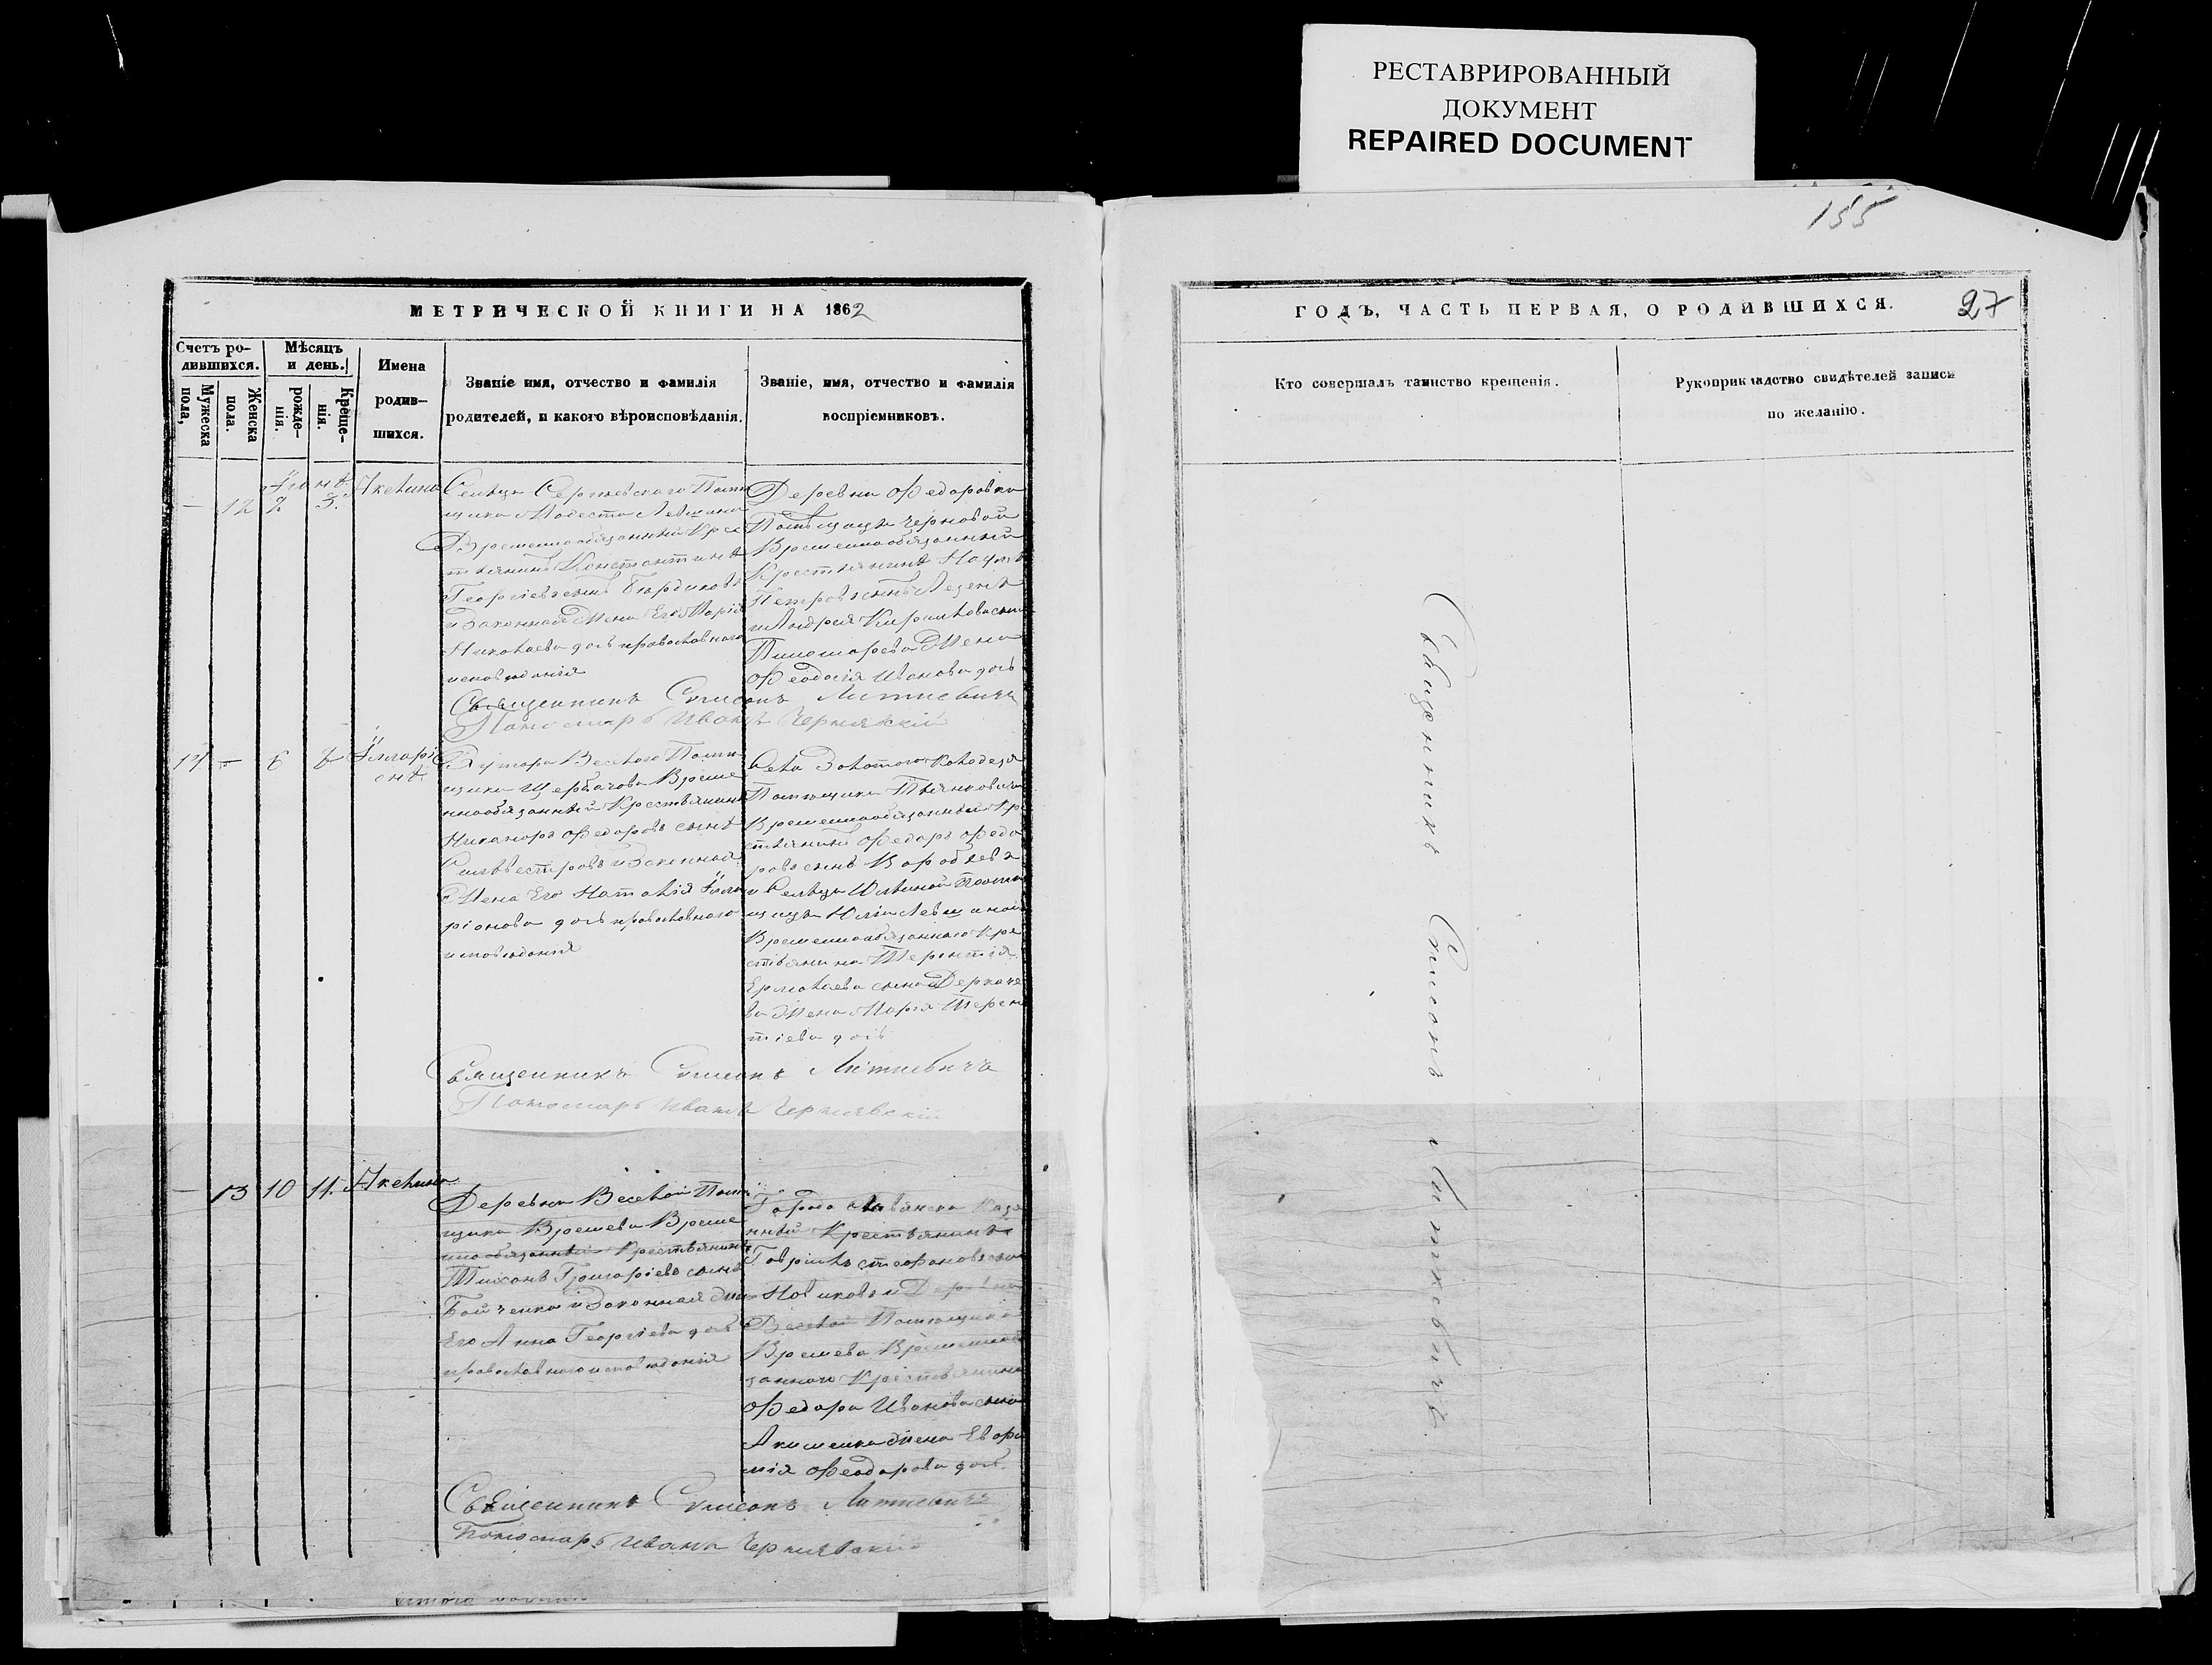 РЕСТАВРИРОВАННЫЙ
ДОКУМЕНТ
REPAIRED DOCUMENT
155
МЕТРИЧЕСКОЙ КНИГИ НА 1862
Счетъ ро-
дившихся.
Мужеска
пола,
Женска
пола.
Мѣсяцъ
и день.
рожде-
нія.
Креще-
нія.
Имена
родив-
шихся.
Званіе имя, отчество и фамилія
родителей, и какого вѣроисповѣданія.
Званіе, имя, отчество и фамилія
воспріемниковъ.
— 12 2 3. Акелина
Сельца Сергѣевскаго Помѣ
щика Модеста Левшина
Временнообязанный Крес
тьянинъ Константинъ
Георгіевъ сынъ
и законная Жена Его Марія
Николаева дочь православнаго
исповѣданія
Деревни Федоровки
Помѣщицы Черновой
Временнообязанный
Крестьянинъ Наумъ
Петровъ сынъ
и Андрея Кирилова сына
Пономарева Жена
Феодосія Иванова дочь
Священникъ Симеонъ
Пономарь Иванъ Чернявскій
— 6 Илларі
онъ
Хутора Веселаго Помѣ
щика Щербачова Време
ннообязанный Крестьянинъ
Никаноръ Федоровъ сынъ
Сильвестровъ и Законная
Жена Его Наталія Илла
ріонова дочь православнаго
исповѣданія
Села Золотого Колодезя
Помѣщика
Временнообязанный Кре
стьянинъ Федоръ Федо
ровъ сынъ Воробьевъ
и Сельца Юльиной Помѣ
щицы Юліи Левшиной
Временнообязаннаго Кре
стьянина Терентія
Ермолаева сына Деркаче
ва Жена Марія Терен
тіева дочь
Священникъ Симеонъ
Пономарь Иванъ Чернявскій
— 13 10 11. Акелина
Деревни Веселой Помѣ
щика Времева Време
ннообязанный Крестьянинъ
Тихонъ Григоріевъ сынъ
Бойченко и Законная Жена
Его Анна Георгіева дочь
православнаго исповѣданія
Города Славянска Казе
нный Крестьянинъ
Гаврилъ Стефановъ сынъ
Новиковъ и Деревни
Веселой Помѣщика
Времева Временнообя
заннаго Крестьянина
Федора Иванова сына
Акименка Жена Евфи
мія Феодорова дочь.
Священникъ Симеонъ
Пономарь Иванъ Чернявскій
ГОДЪ, ЧАСТЬ ПЕРВАЯ, О РОДИВШИХСЯ.
27
Кто совершалъ таинство крещенія.
Рукоприкладство свидѣтелей записи
по желанію.
Священникъ Симеонъ